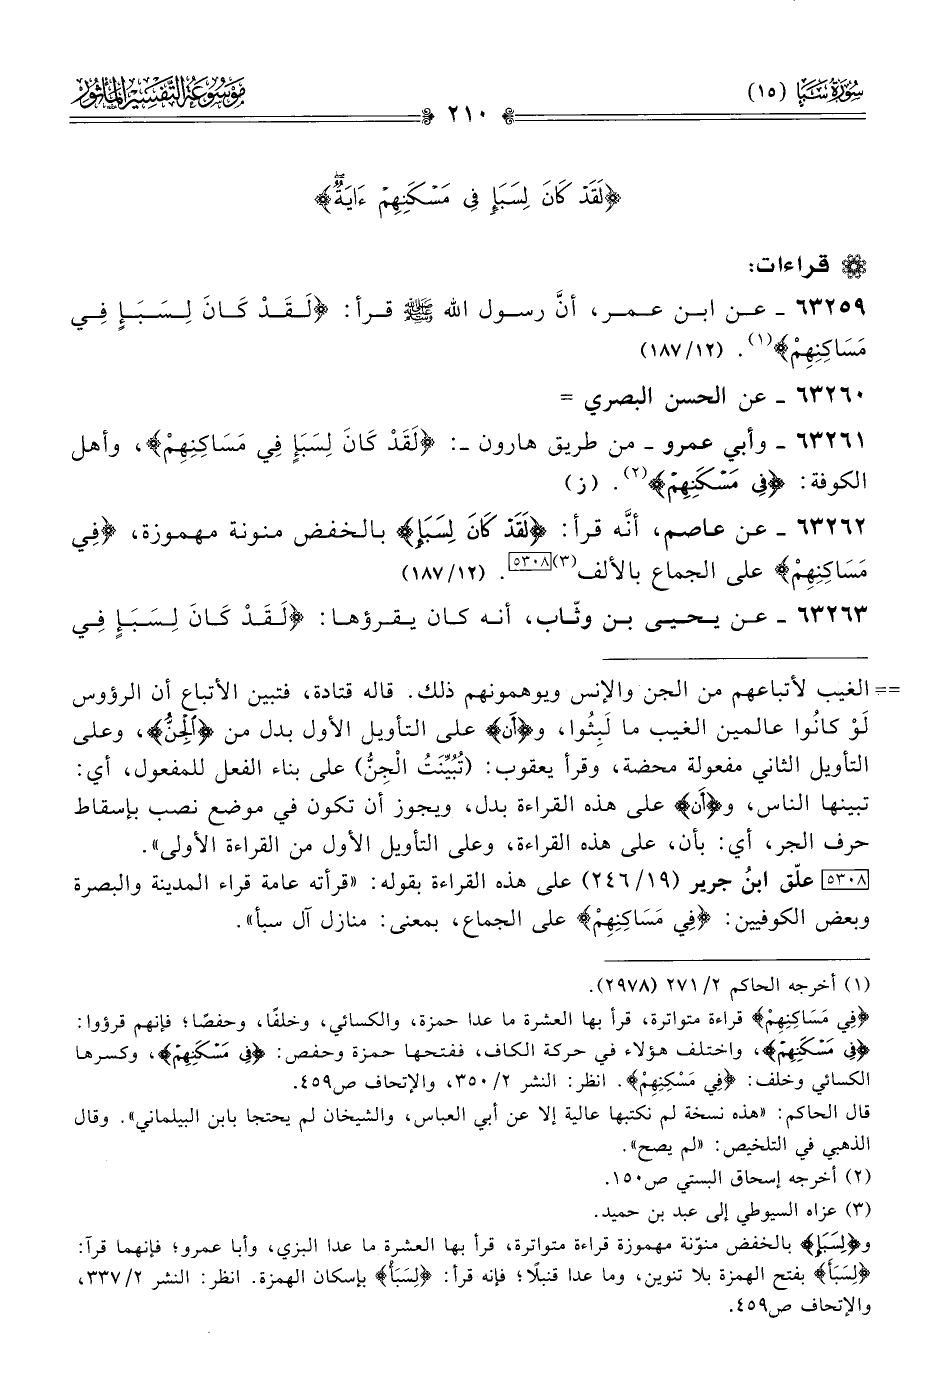 سُورَةُ سَبَإٍ (١٥)
٢١٠
مَوْسُوعَةُ التَّفْسِيرِ المَأْثُورِ
﴿لَقَدْ كَانَ لِسَبَإٍ فِي مَسْكَنِهِمْ ءَايَةٌ﴾
قراءات:
٦٣٢٥٩ ـ عن ابن عمر، أنَّ رسول الله ﷺ قرأ: ﴿لَقَدْ كَانَ لِسَبَإٍ فِي
مَسَاكِنِهِمْ﴾(١). (١٨٧/١٢)
٦٣٢٦٠ ـ عن الحسن البصري =
٦٣٢٦١ ـ وأبي عمرو ـ من طريق هارون ـ: ﴿لَقَدْ كَانَ لِسَبَإٍ فِي مَسَاكِنِهِمْ﴾، وأهل
الكوفة: ﴿فِي مَسْكَنِهِمْ﴾(٢). (ز)
٦٣٢٦٢ ـ عن عاصم، أنَّه قرأ: ﴿لَقَدْ كَانَ لِسَبَإٍ﴾ بالخفض منونة مهموزة، ﴿فِي
مَسَاكِنِهِمْ﴾ على الجماع بالألف(٣)[٥٣٠٨]. (١٨٧/١٢)
٦٣٢٦٣ ـ عن يحيى بن وثّاب، أنه كان يقرؤها: ﴿لَقَدْ كَانَ لِسَبَإٍ فِي
== الغيب لأتباعهم من الجن والإنس ويوهمونهم ذلك. قاله قتادة، فتبين الأتباع أن الرؤوس
لَوْ كَانُوا عالمين الغيب ما لَبِثُوا، و﴿أَن﴾ على التأويل الأول بدل من ﴿الْجِنُّ﴾، وعلى
التأويل الثاني مفعولة محضة، وقرأ يعقوب: (تُبُيِّنَتُ الْجِنُّ) على بناء الفعل للمفعول، أي:
تبينها الناس، و﴿أَن﴾ على هذه القراءة بدل، ويجوز أن تكون في موضع نصب بإسقاط
حرف الجر، أي: بأن، على هذه القراءة، وعلى التأويل الأول من القراءة الأولى».
[٥٣٠٨] علّق ابنُ جرير (٢٤٦/١٩) على هذه القراءة بقوله: «قرأته عامة قراء المدينة والبصرة
وبعض الكوفيين: ﴿فِي مَسَاكِنِهِمْ﴾ على الجماع، بمعنى: منازل آل سبأ».
(١) أخرجه الحاكم ٢٧١/٢ (٢٩٧٨).
﴿فِي مَسَاكِنِهِمْ﴾ قراءة متواترة، قرأ بها العشرة ما عدا حمزة، والكسائي، وخلفًا، وحفصًا؛ فإنهم قرؤوا:
﴿فِي مَسْكَنِهِمْ﴾، واختلف هؤلاء في حركة الكاف، ففتحها حمزة وحفص: ﴿فِي مَسْكَنِهِمْ﴾، وكسرها
الكسائي وخلف: ﴿فِي مَسْكِنِهِمْ﴾. انظر: النشر ٣٥٠/٢، والإتحاف ص٤٥٩.
قال الحاكم: «هذه نسخة لم نكتبها عالية إلا عن أبي العباس، والشيخان لم يحتجا بابن البيلماني». وقال
الذهبي في التلخيص: «لم يصح».
(٢) أخرجه إسحاق البستي ص١٥٠.
(٣) عزاه السيوطي إلى عبد بن حميد.
و﴿لِسَبَإٍ﴾ بالخفض منوّنة مهموزة قراءة متواترة، قرأ بها العشرة ما عدا البزي، وأبا عمرو؛ فإنهما قرآ:
﴿لِسَبَأَ﴾ بفتح الهمزة بلا تنوين، وما عدا قنبلًا؛ فإنه قرأ: ﴿لِسَبَأْ﴾ بإسكان الهمزة. انظر: النشر ٣٣٧/٢،
والإتحاف ص٤٥٩.